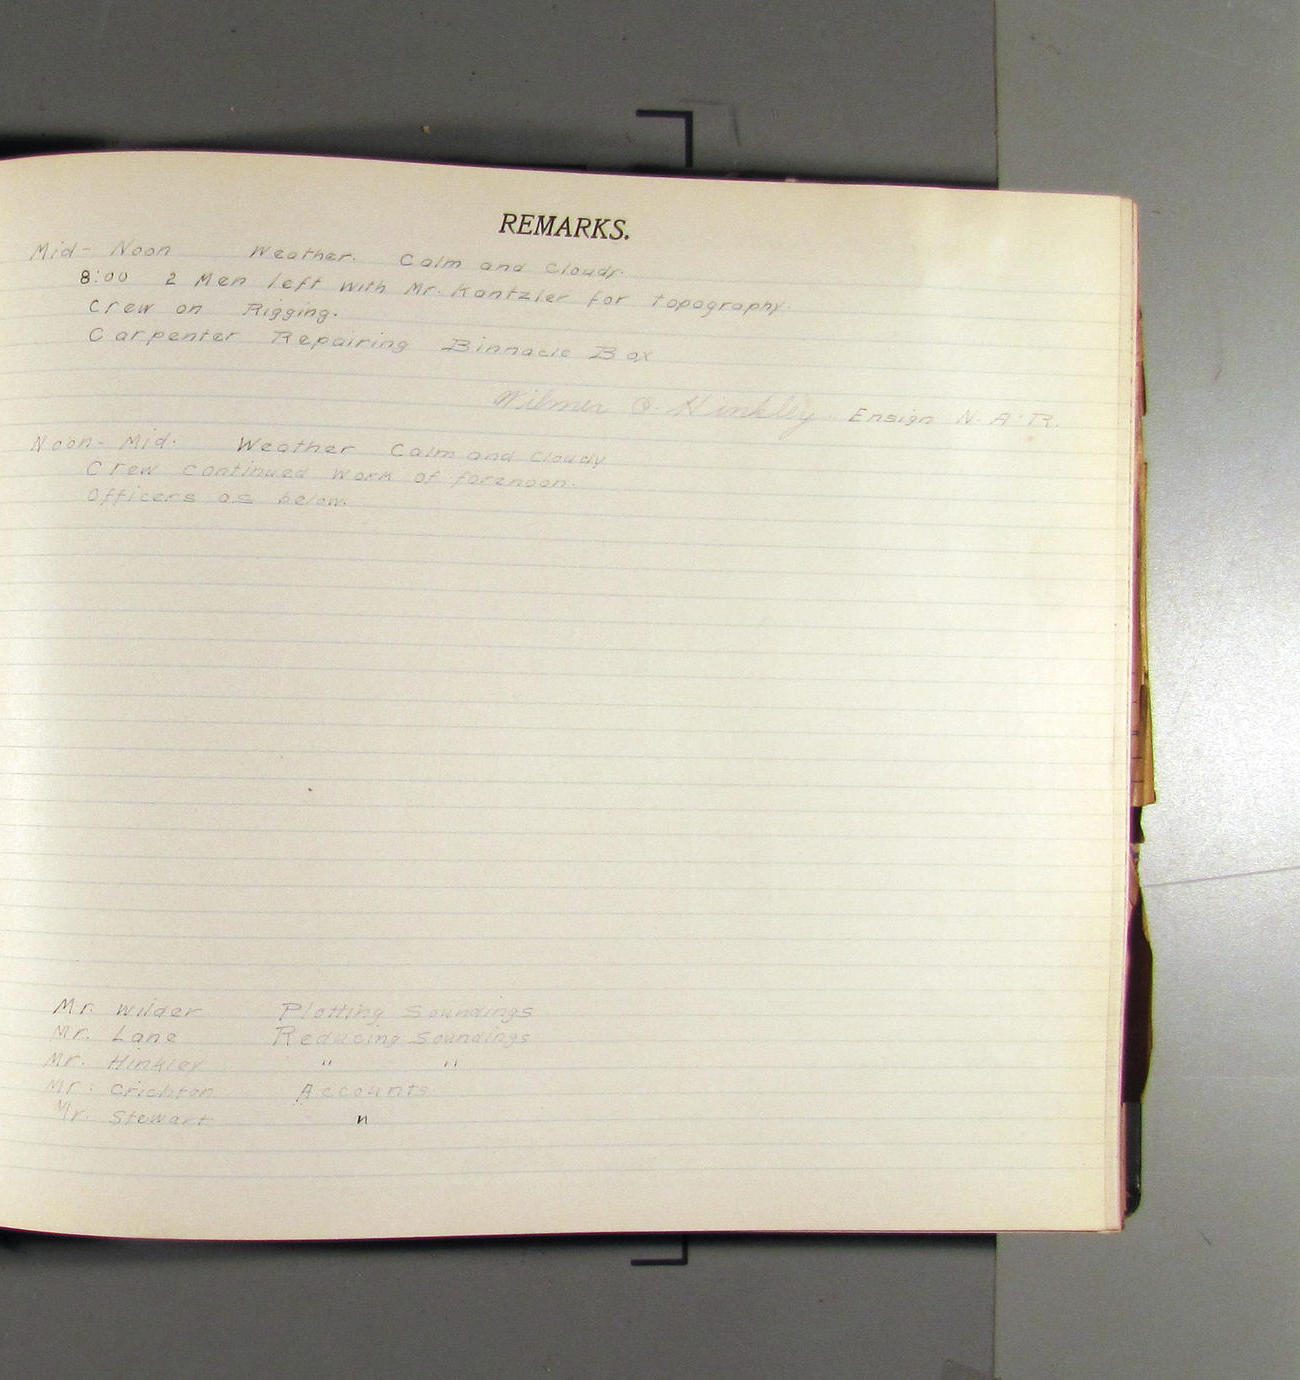 REMARKS.
Mid- Noon Weather. Calm and Cloudy.
8:00 2 Men left with Mr. Kantzler for topography.
Crew on Rigging.
Carpenter Repairing Binnacle Box
Wilmer O. Hinkley Ensign N.A.R.
Noon- Mid. Weather Calm and Cloudy
Crew continued work of forenoon.
Officers as below.
Mr. Wilder Plotting Soundings
Mr. Lane Reducing Soundings
Mr. Hinkley " "
Mr. Crichton Accounts
Mr. Stewart "